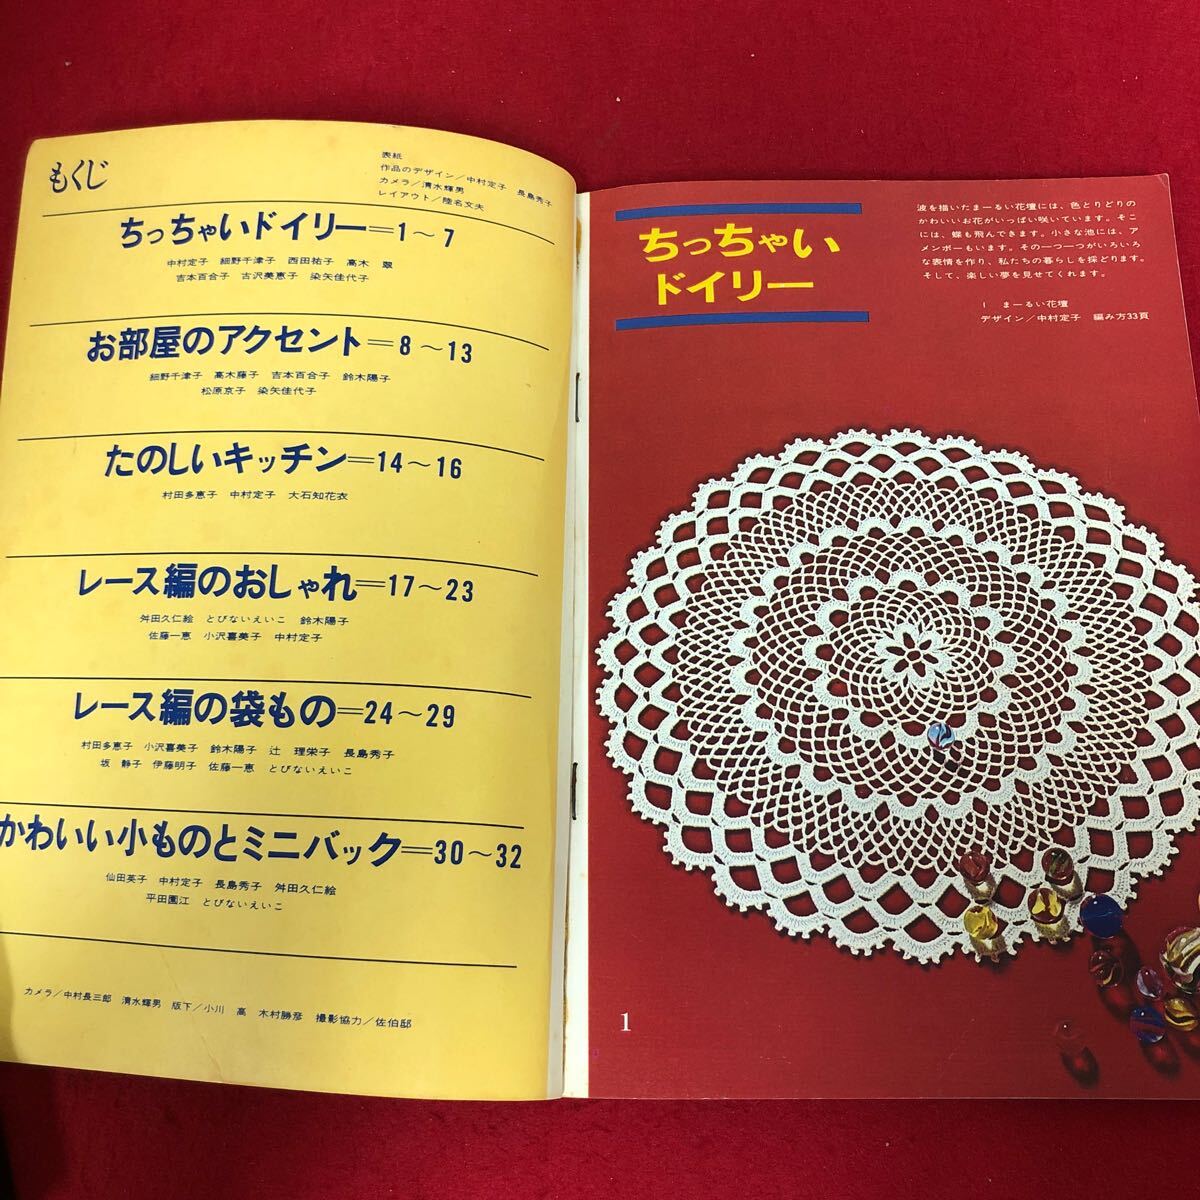 もくじ
表紙
作品のデザイン／中村定子　長島秀子
カメラ／清水輝男
レイアウト／陸名文夫
ちっちゃいドイリー＝1〜7
中村定子　細野千津子　西田祐子　高木　翠
吉本百合子　古沢美恵子　染矢佳代子
お部屋のアクセント＝8〜13
細野千津子　高木藤子　吉本百合子　鈴木陽子
松原京子　染矢佳代子
たのしいキッチン＝14〜16
村田多恵子　中村定子　大石知花衣
レース編のおしゃれ＝17〜23
舛田久仁絵　とびないえいこ　鈴木陽子
佐藤一恵　小沢喜美子　中村定子
レース編の袋もの＝24〜29
村田多恵子　小沢喜美子　鈴木陽子　辻　理栄子　長島秀子
坂　静子　伊藤明子　佐藤一恵　とびないえいこ
かわいい小ものとミニバック＝30〜32
仙田英子　中村定子　長島秀子　舛田久仁絵
平田園江　とびないえいこ
カメラ／中村長三郎　清水輝男　版下／小川　高　木村勝彦　撮影協力／佐伯邸
ちっちゃい
ドイリー
波を描いたまーるい花壇には、色とりどりの
かわいいお花がいっぱい咲いています。そこ
には、蝶も飛んできます。小さな池には、ア
メンボーもいます。その一つ一つがいろいろ
な表情を作り、私たちの暮らしを採どります。
そして、楽しい夢を見せてくれます。
1　まーるい花壇
デザイン／中村定子　編み方33頁
1